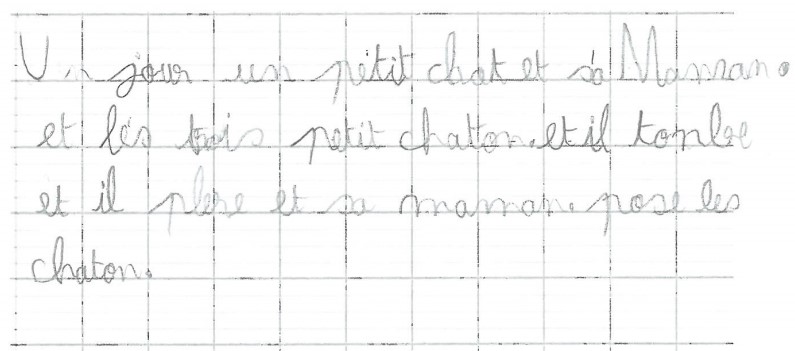 Un jour un petit chat et sa Maman.
et les trois petit chaton. et il tonbe
et il plere et sa maman. pose les
chaton.